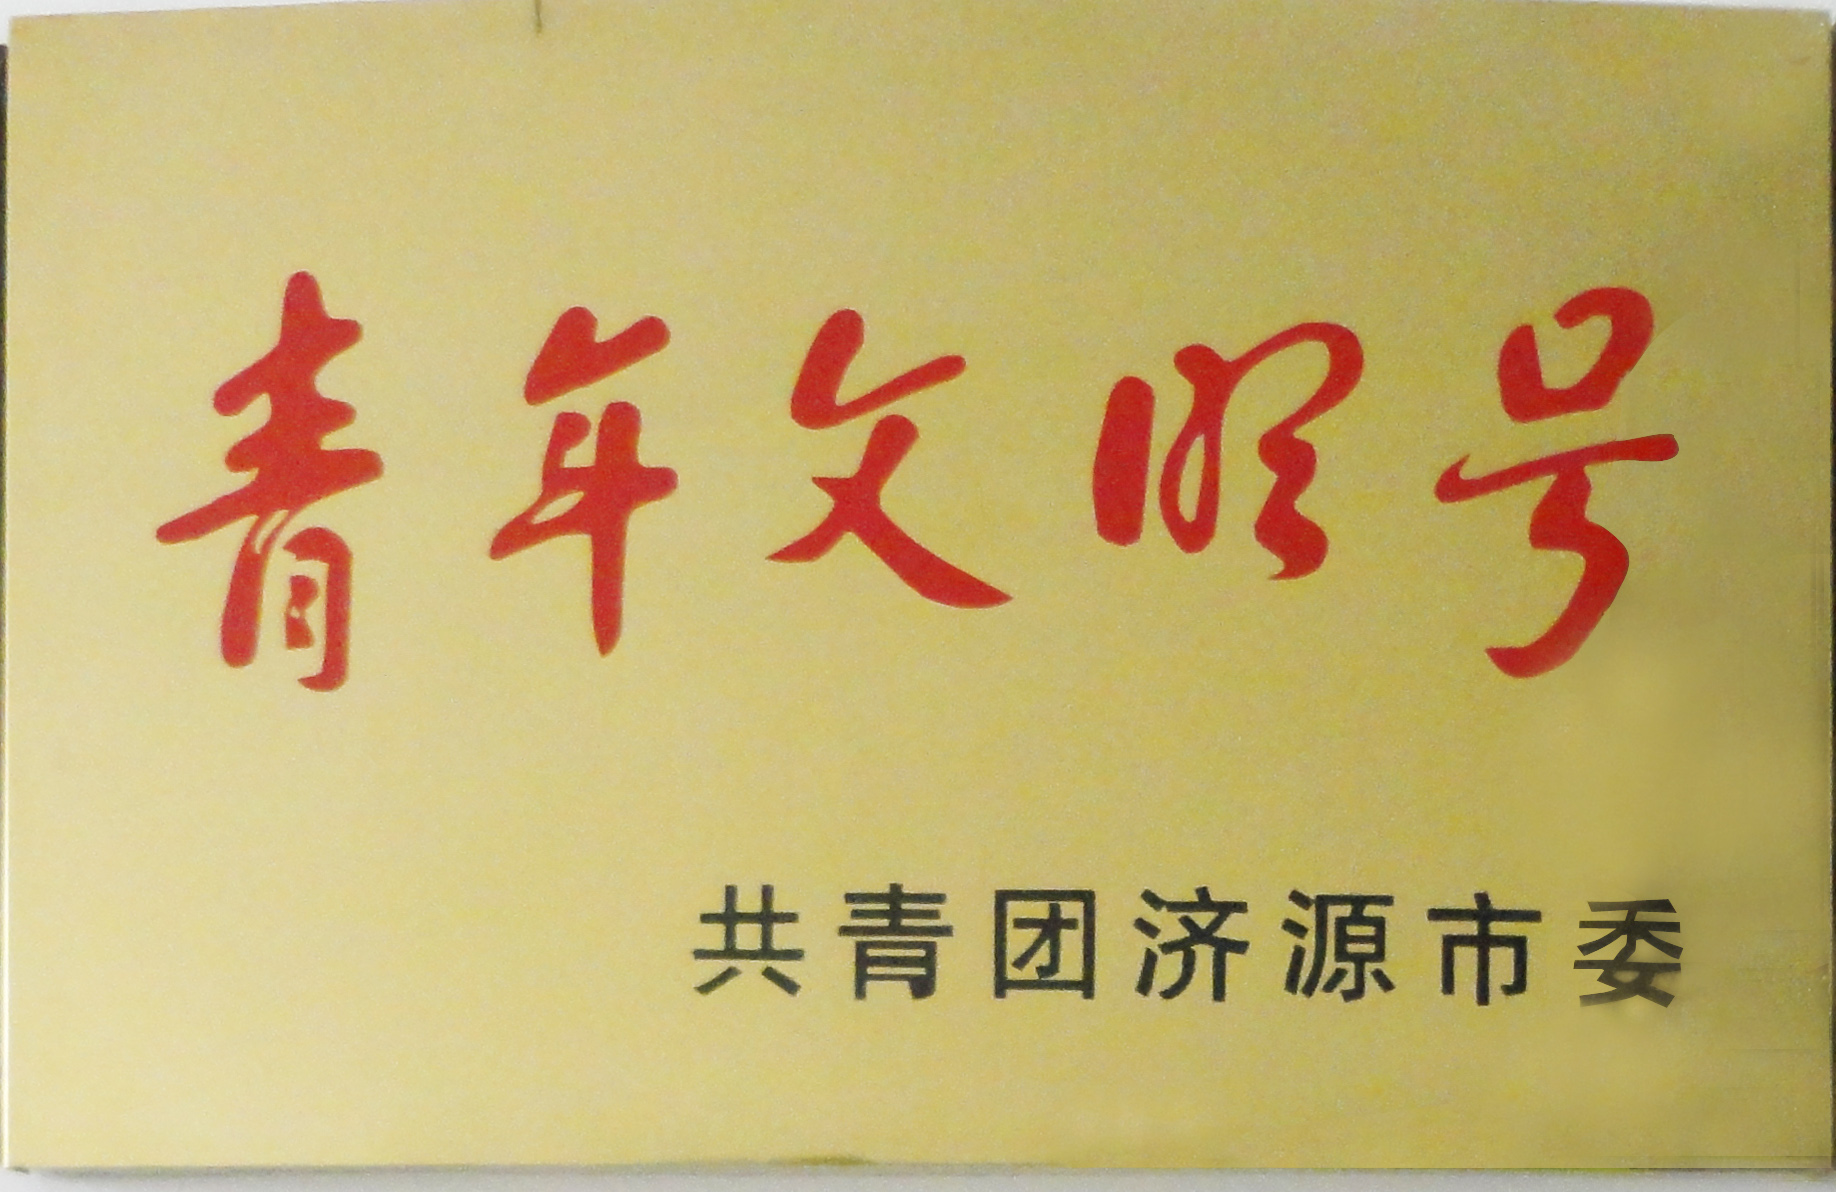 青年文明号
共青团济源市委